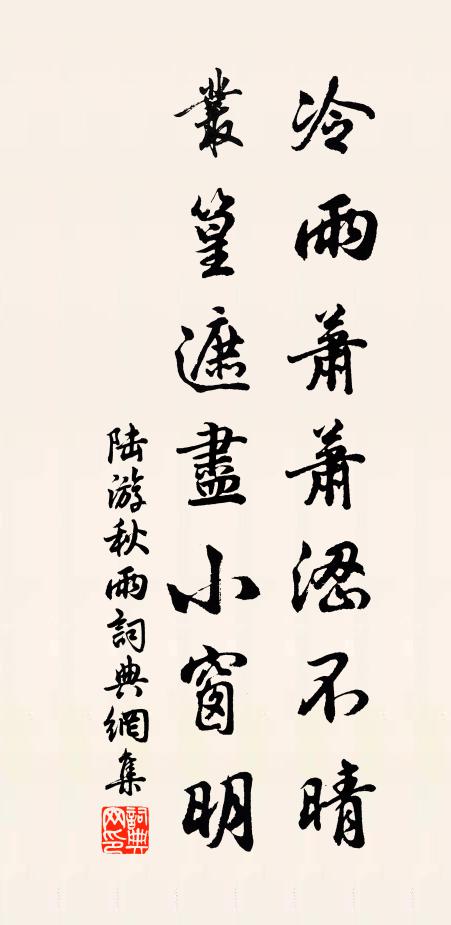 冷雨蕭蕭澀不晴
叢篁遮盡小窗明
陆游秋雨詞典網集
詞典网印